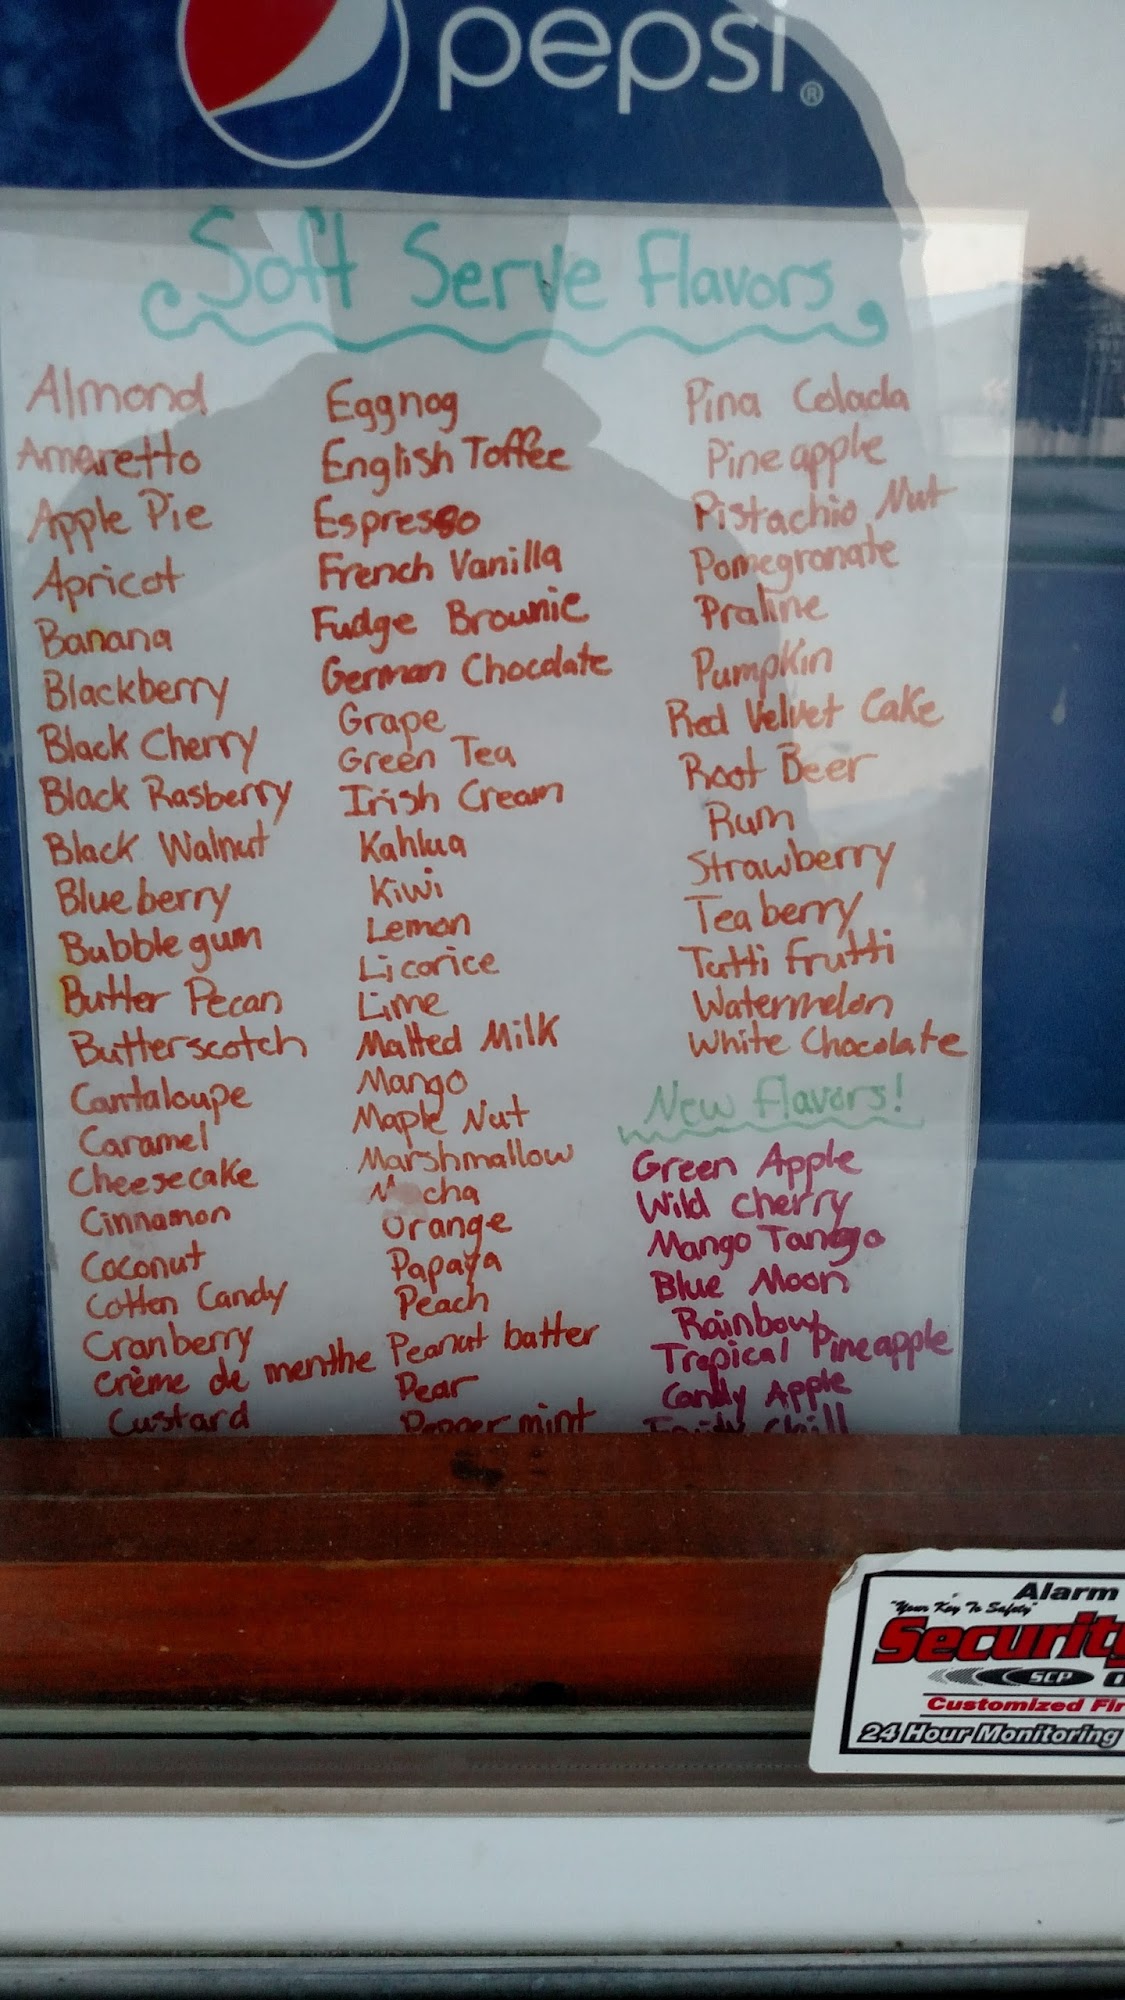 pepsi®
Soft Serve Flavors
Almond
Amaretto
Apple Pie
Apricot
Banana
Blackberry
Black Cherry
Black Rasberry
Black Walnut
Blueberry
Bubble gum
Butter Pecan
Butterscotch
Cantaloupe
Caramel
Cheesecake
Cinnamon
Coconut
Cotten Candy
Cranberry
Crème de menthe
Custard
Eggnog
English Toffee
Espresso
French Vanilla
Fudge Brownie
German Chocolate
Grape
Green Tea
Irish Cream
Kahlua
Kiwi
Lemon
Licorice
Lime
Malted Milk
Mango
Maple Nut
Marshmallow
Mocha
Orange
Papaya
Peach
Peanut butter
Pear
Peppermint
Pina Colada
Pineapple
Pistachio Nut
Pomegronate
Praline
Pumpkin
Red Velvet Cake
Root Beer
Rum
Strawberry
Teaberry
Tutti Frutti
Watermelon
White Chocolate
New Flavors!
Green Apple
Wild Cherry
Mango Tango
Blue Moon
Rainbow
Tropical Pineapple
Candy Apple
Chill
Alarm
"Your Key To Safety"
Security
SCP
Customized Fir
24 Hour Monitoring